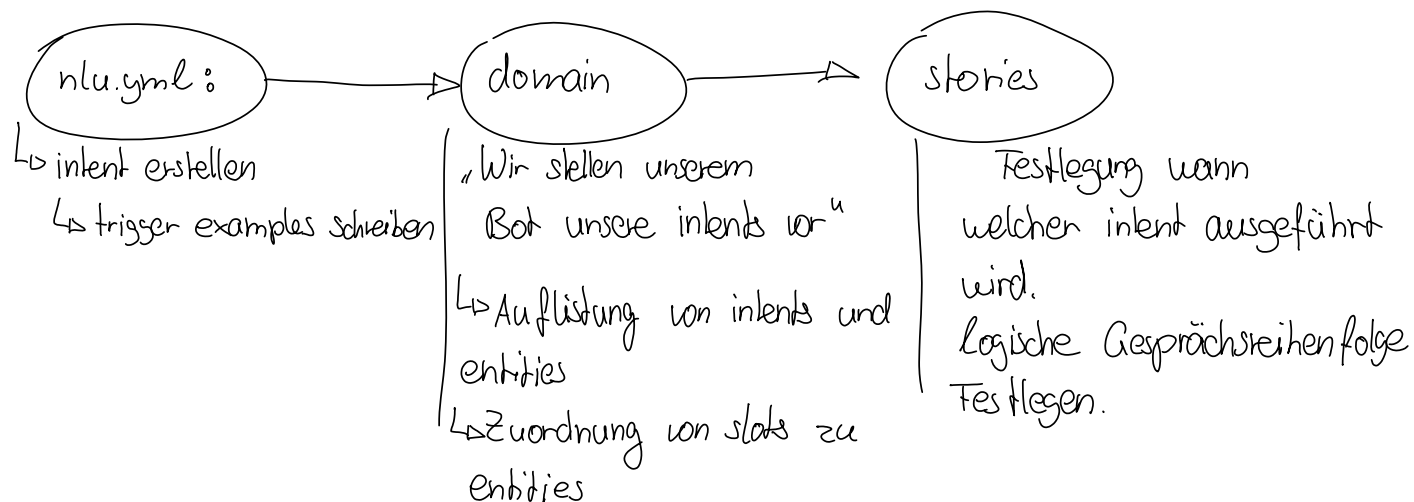 nlu.yml:
↳ intent erstellen
↳ trigger examples schreiben
domain
„Wir stellen unserem
Bot unsere intents vor“
↳ Auflistung von intents und
entities
↳ Zuordnung von slots zu
entities
stories
Festlegung wann
welcher intent ausgeführt
wird.
logische Gesprächsreihenfolge
Festlegen.